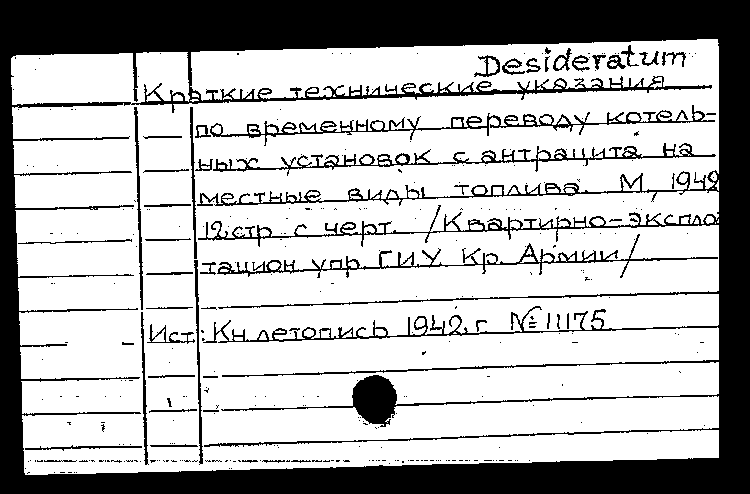 Desideratum
Краткие технические указания
по временному переводу котель-
ных установок с антрацита на
местные виды топлива. М., 1942
12 стр с черт. /Квартирно-экспло
тацион упр. Г.И.У. Кр. Армии/
Ист: Кн. летопись 1942 г №11175